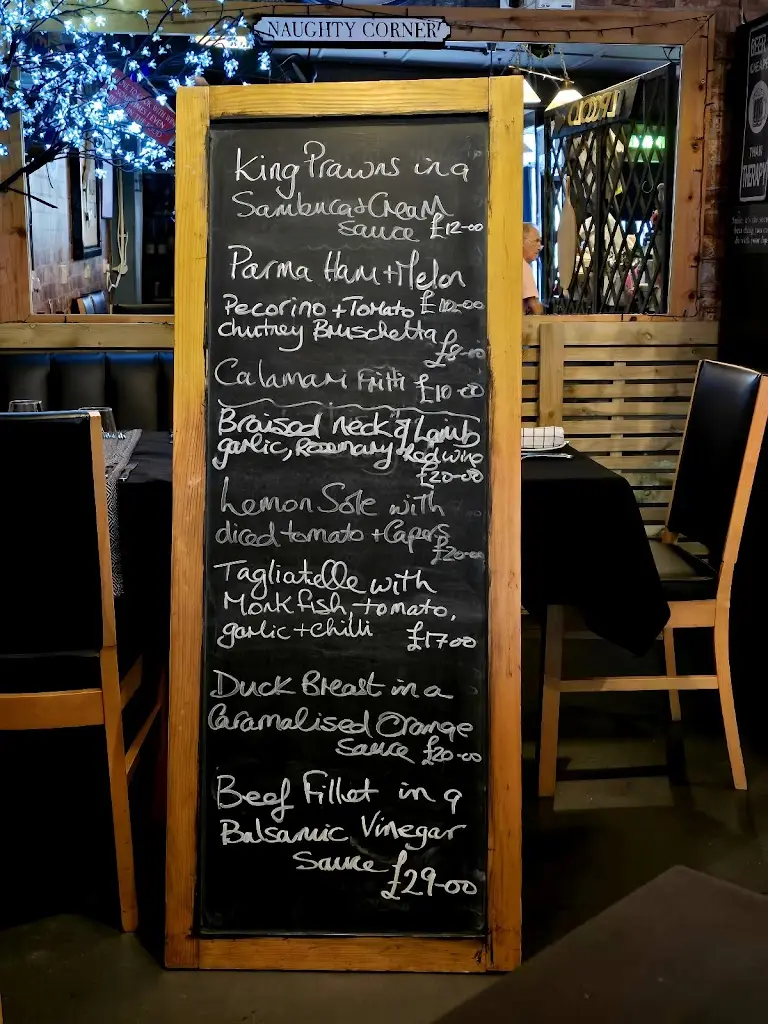 NAUGHTY CORNER
King Prawns in a
Sambuca + Cream
Sauce £12-00
Parma Ham + Melon
£10-00
Pecorino + Tomato
chutney Bruschetta
£8-00
Calamari Fritti £10-00
Braised neck of Lamb
garlic, Rosemary + Red wine
£20-00
Lemon Sole with
diced tomato + Capers
£20-00
Tagliatelle with
Monkfish, tomato,
garlic + chilli £17-00
Duck Breast in a
Caramalised Orange
Sauce £20-00
Beef Fillet in a
Balsamic Vinegar
Sauce £29-00
BEER
CHEAPER
THAN
THERAPY